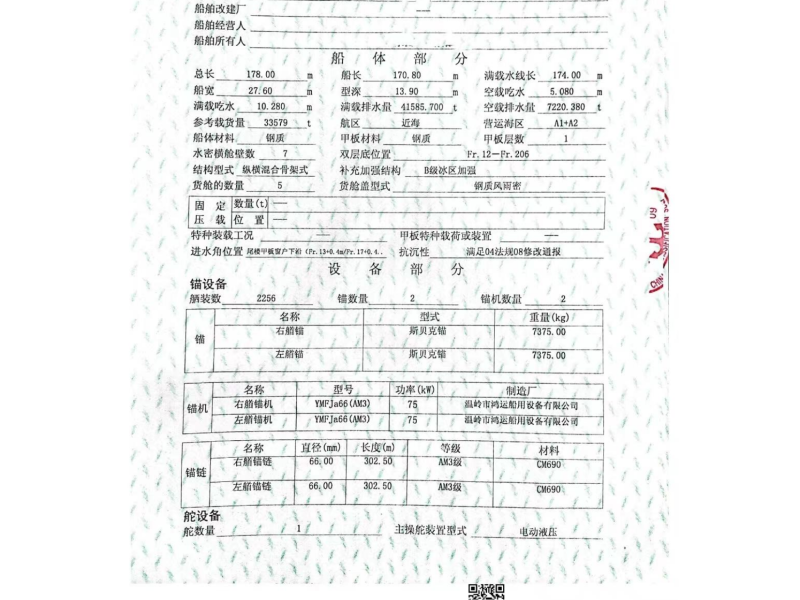 船舶改建厂 —
船舶经营人
船舶所有人
船 体 部 分
总长 178.00 m 船长 170.80 m 满载水线长 174.00 m
船宽 27.60 m 型深 13.90 m 空载吃水 5.080 m
满载吃水 10.280 m 满载排水量 41585.700 t 空载排水量 7220.380 t
参考载货量 33579 t 航区 近海 营运海区 A1+A2
船体材料 钢质 甲板材料 钢质 甲板层数 1
水密横舱壁数 7 双层底位置 Fr.12—Fr.206
结构型式 纵横混合骨架式 补充加强结构 B级冰区加强
货舱的数量 5 货舱盖型式 钢质风雨密
固定压载 数量(t) —
位置 —
特种装载工况 — 甲板特种载荷或装置 —
进水角位置 尾楼甲板窗户下沿(Fr.13+0.4m/Fr.17+0.4.. 抗沉性 满足04法规08修改通报
设 备 部 分
锚设备
舾装数 2256 锚数量 2 锚机数量 2
锚 名称 型式 重量(kg)
右艏锚 斯贝克锚 7375.00
左艏锚 斯贝克锚 7375.00
锚机 名称 型号 功率(kW) 制造厂
右艏锚机 YMFJa66(AM3) 75 温岭市鸿运船用设备有限公司
左艏锚机 YMFJa66(AM3) 75 温岭市鸿运船用设备有限公司
锚链 名称 直径(mm) 长度(m) 等级 材料
右艏锚链 66.00 302.50 AM3级 CM690
左艏锚链 66.00 302.50 AM3级 CM690
舵设备
舵数量 1 主操舵装置型式 电动液压